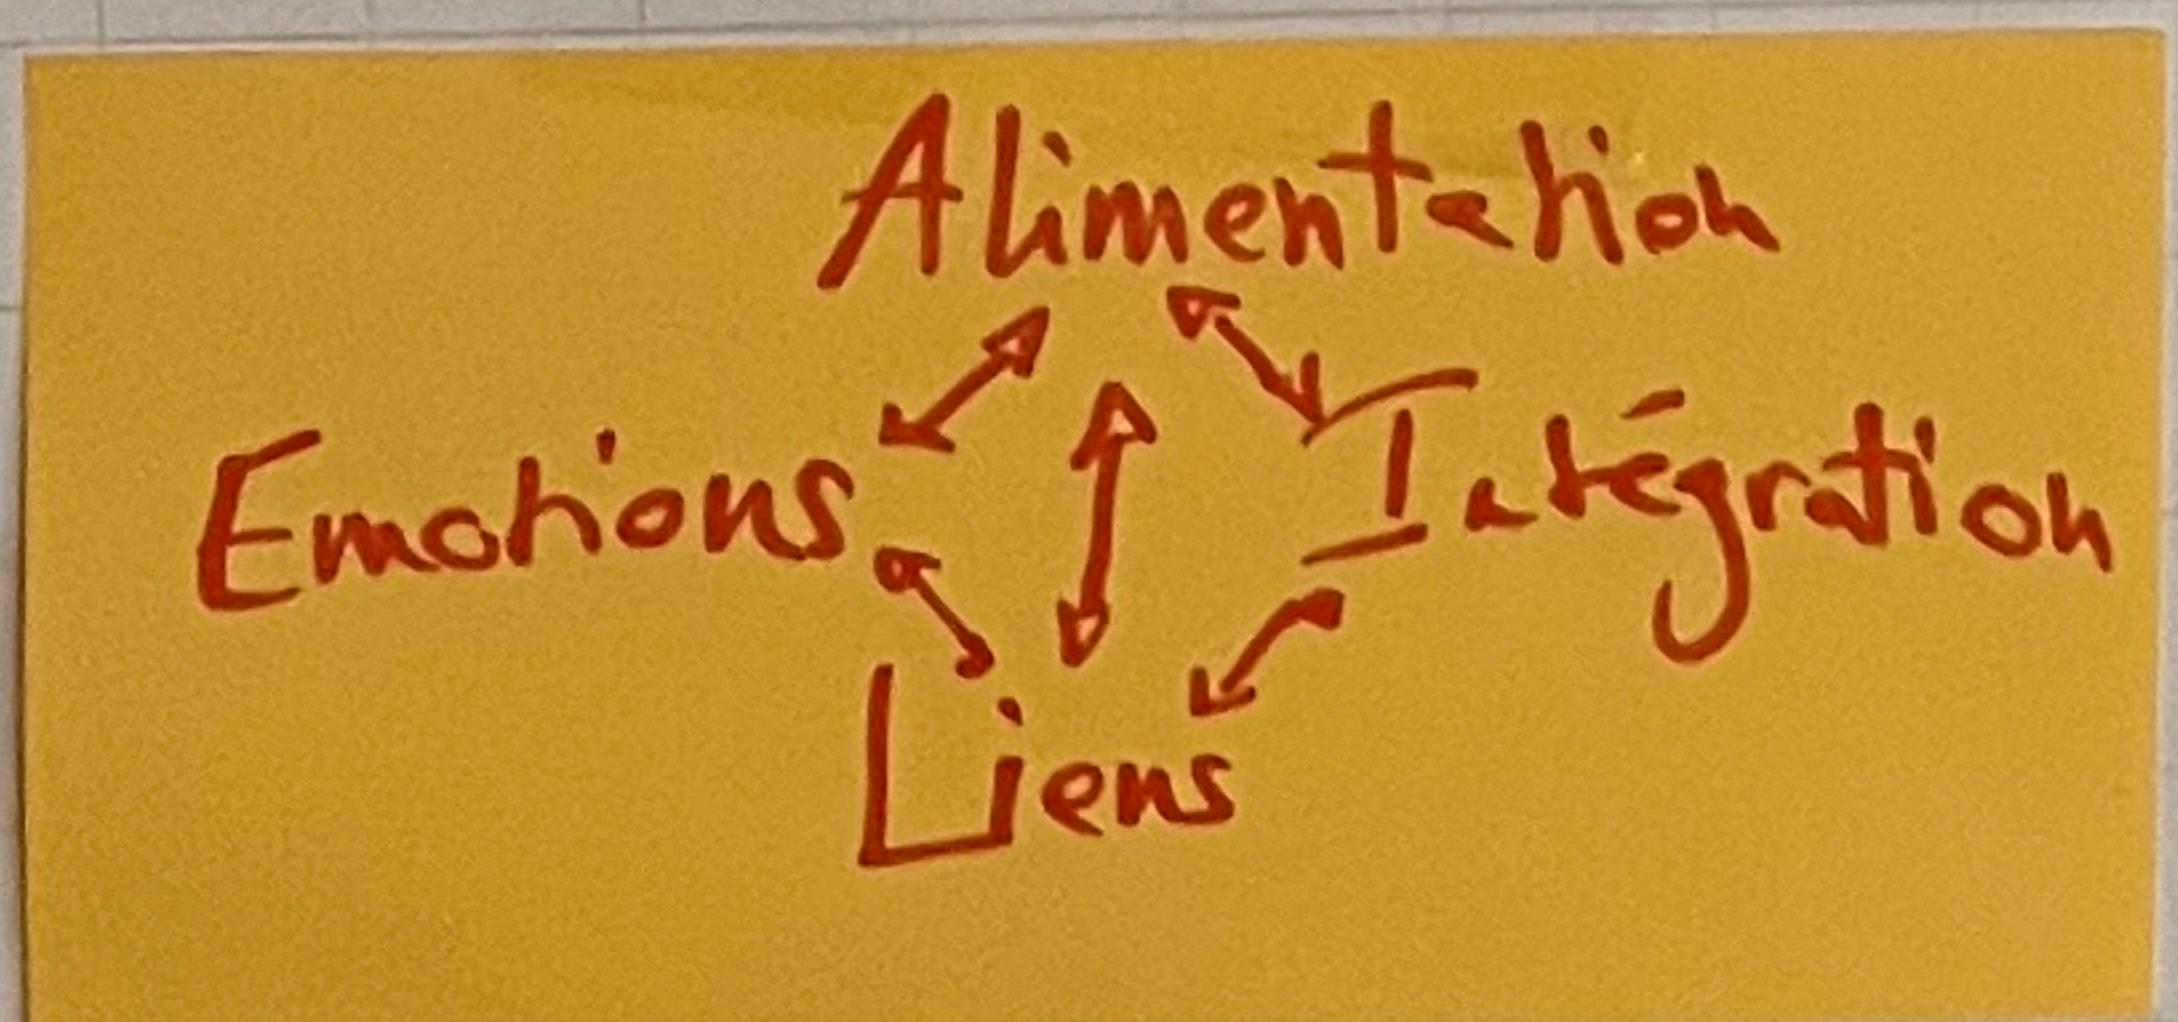 Alimentation
Emotions
Intégration
Liens